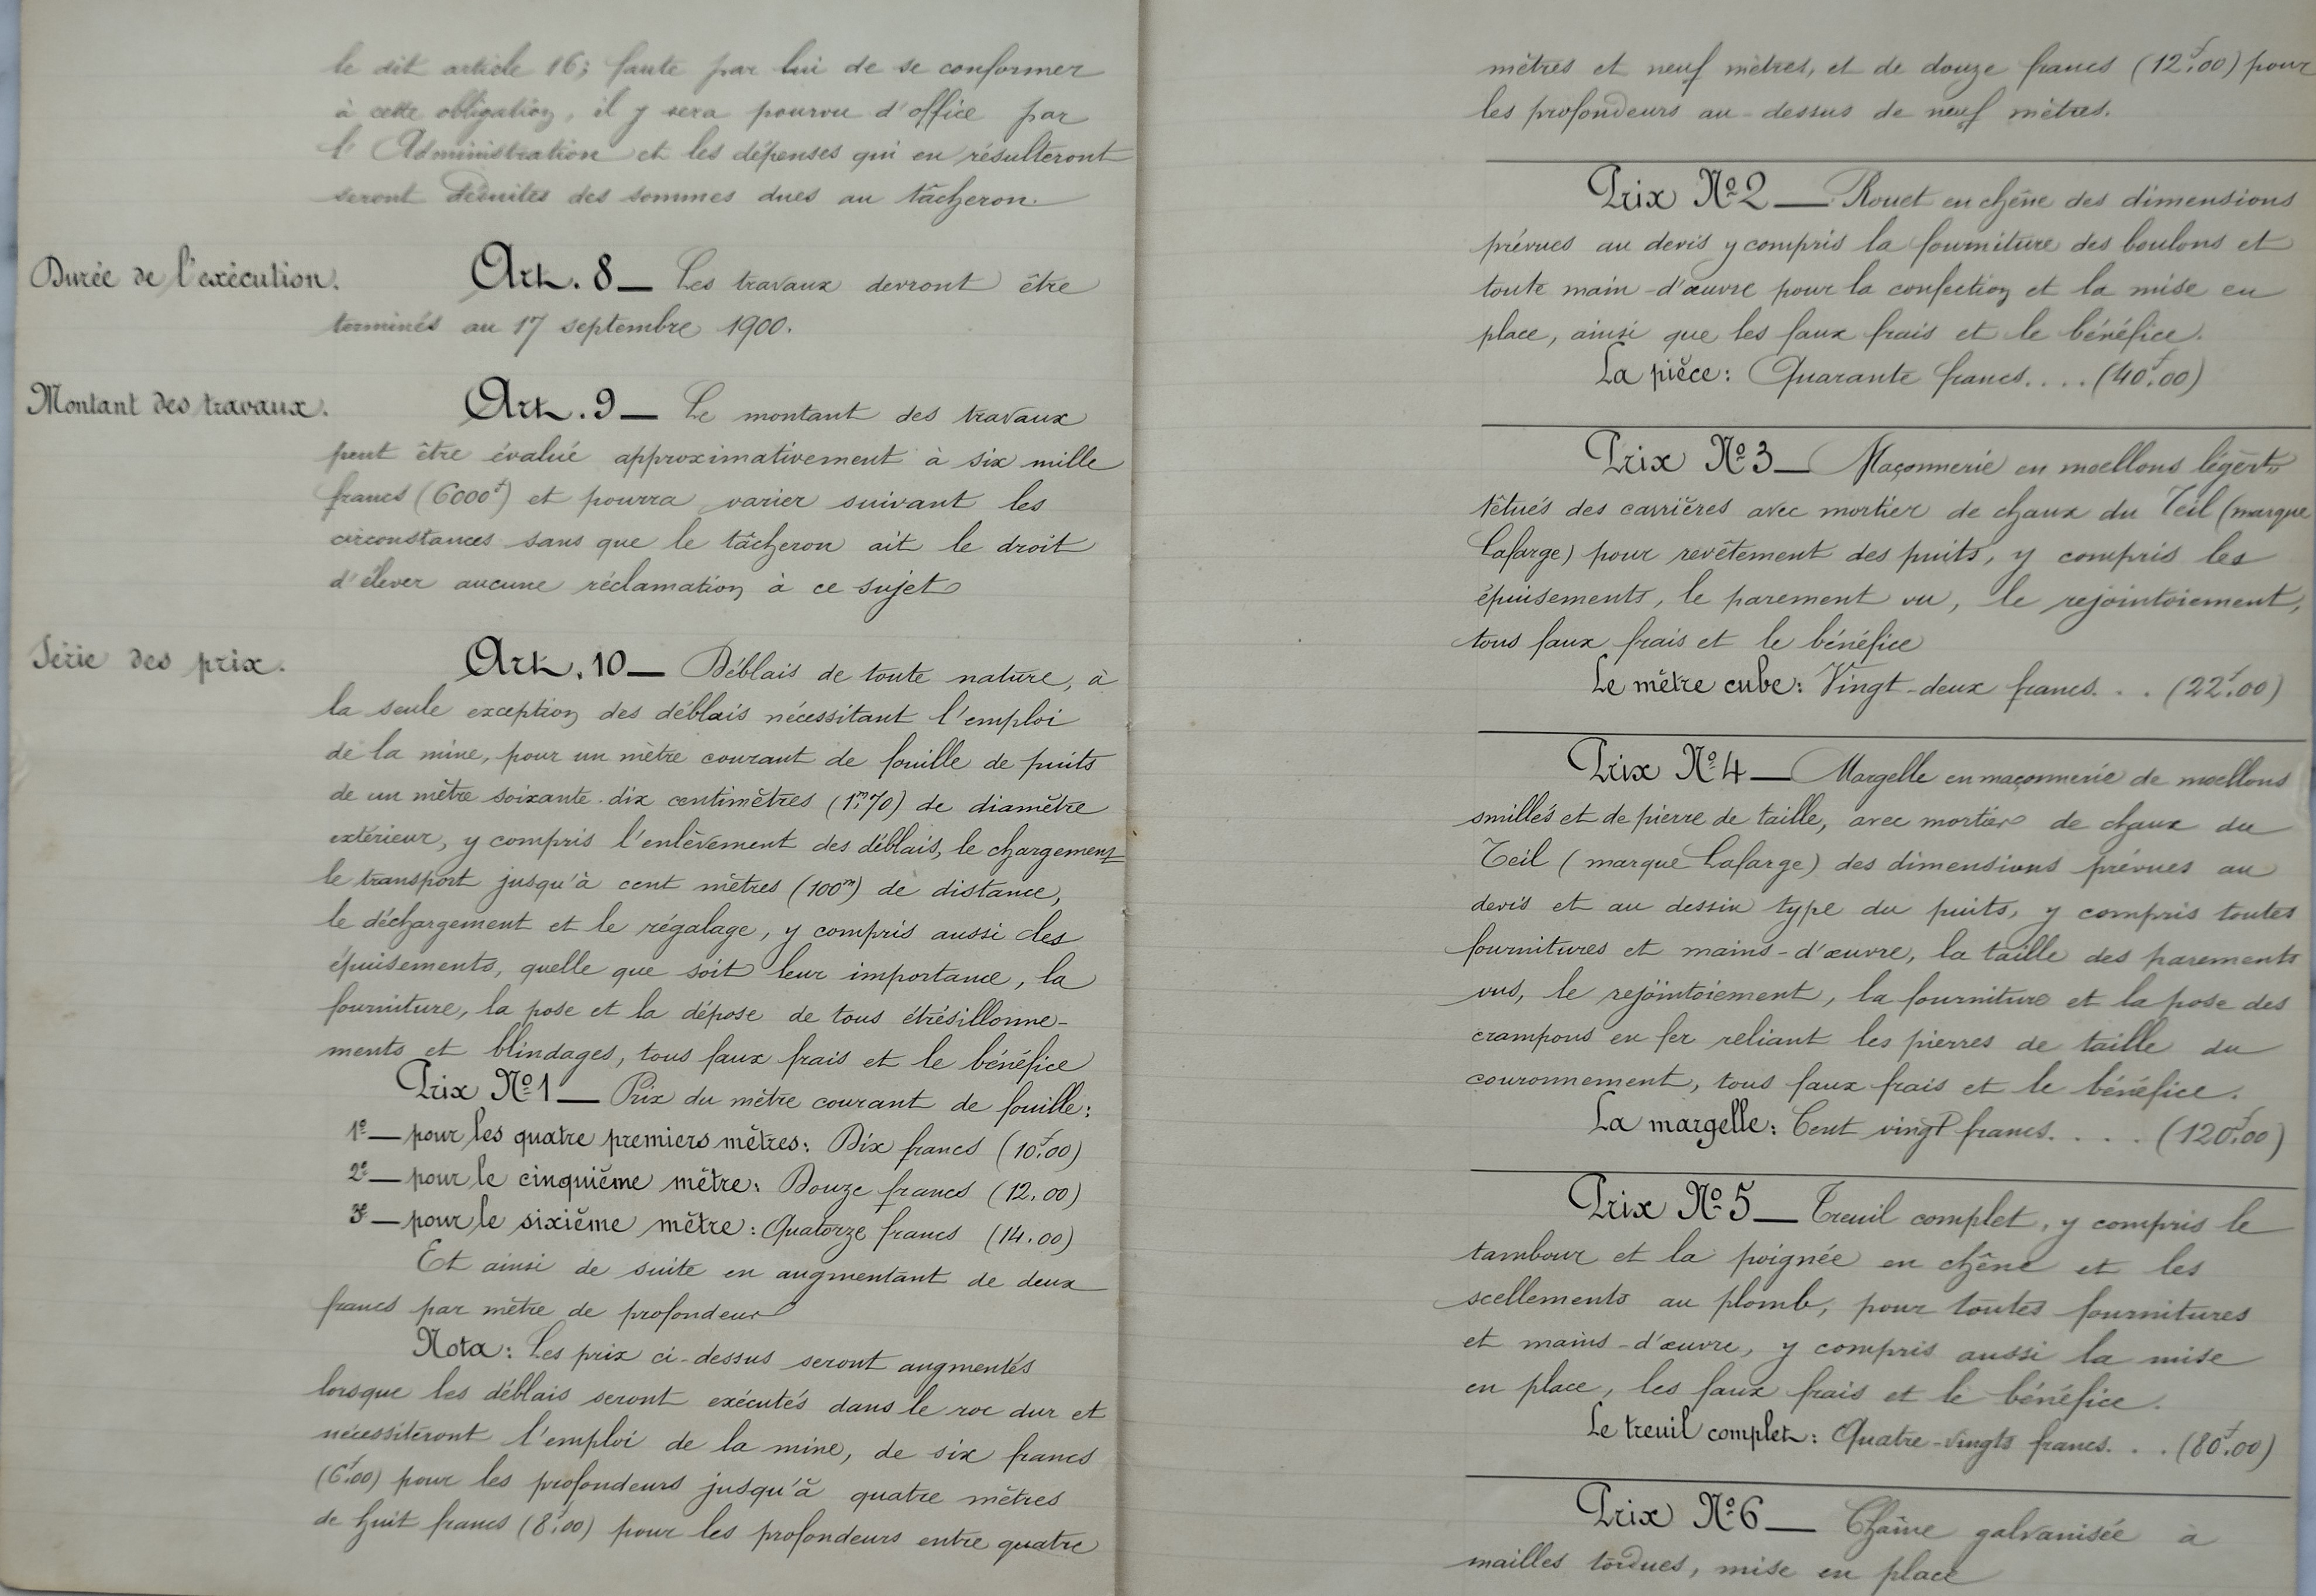 le dit article 16; faute par lui de se conformer
à cette obligation, il y sera pourvu d'office par
l'Administration et les dépenses qui en résulteront
seront déduites des sommes dues au tâcheron.
Durée de l'exécution.
Art. 8 — Les travaux devront être
terminés au 17 septembre 1900.
Montant des travaux.
Art. 9 — Le montant des travaux
peut être évalué approximativement à six mille
francs (6000f) et pourra varier suivant les
circonstances sans que le tâcheron ait le droit
d'élever aucune réclamation à ce sujet
Série des prix.
Art. 10 — Déblais de toute nature, à
la seule exception des déblais nécessitant l'emploi
de la mine, pour un mètre courant de fouille de puits
de un mètre soixante-dix centimètres (1m,70) de diamètre
extérieur, y compris l'enlèvement des déblais, le chargement
le transport jusqu'à cent mètres (100m) de distance,
le déchargement et le régalage, y compris aussi les
épuisements, quelle que soit leur importance, la
fourniture, la pose et la dépose de tous étrésillonne-
ments et blindages, tous faux frais et le bénéfice
Prix No 1 — Prix du mètre courant de fouille:
1o — pour les quatre premiers mètres: Dix francs (10f,00)
2o — pour le cinquième mètre: Douze francs (12,00)
3o — pour le sixième mètre: Quatorze francs (14.00)
Et ainsi de suite en augmentant de deux
francs par mètre de profondeur
Nota: Les prix ci-dessus seront augmentés
lorsque les déblais seront exécutés dans le roc dur et
nécessiteront l'emploi de la mine, de six francs
(6f,00) pour les profondeurs jusqu'à quatre mètres
de huit francs (8f,00) pour les profondeurs entre quatre
mètres et neuf mètres, et de douze francs (12f,00) pour
les profondeurs au-dessus de neuf mètres.
Prix No 2 — Rouet en chêne des dimensions
prévues au devis y compris la fourniture des boulons et
toute main-d'œuvre pour la confection et la mise en
place, ainsi que les faux frais et le bénéfice.
La pièce: Quarante francs.... (40f,00)
Prix No 3 — Maçonnerie en moellons légèrt
têtués des carrières avec mortier de chaux du Teil (marque
Lafarge) pour revêtement des puits, y compris les
épuisements, le parement vu, le rejointoiement,
tous faux frais et le bénéfice
Le mètre cube: Vingt-deux francs... (22f,00)
Prix No 4 — Margelle en maçonnerie de moellons
smillés et de pierre de taille, avec mortier de chaux du
Teil (marque Lafarge) des dimensions prévues au
devis et au dessin type du puits, y compris toutes
fournitures et mains-d'œuvre, la taille des parements
vus, le rejointoiement, la fourniture et la pose des
crampons en fer reliant les pierres de taille du
couronnement, tous faux frais et le bénéfice.
La margelle: Cent vingt francs.... (120f,00)
Prix No 5 — Treuil complet, y compris le
tambour et la poignée en chêne et les
scellements au plomb, pour toutes fournitures
et mains-d'œuvre, y compris aussi la mise
en place, les faux frais et le bénéfice.
Le treuil complet: Quatre-vingts francs... (80f,00)
Prix No 6 — Chaîne galvanisée à
mailles tordues, mise en place